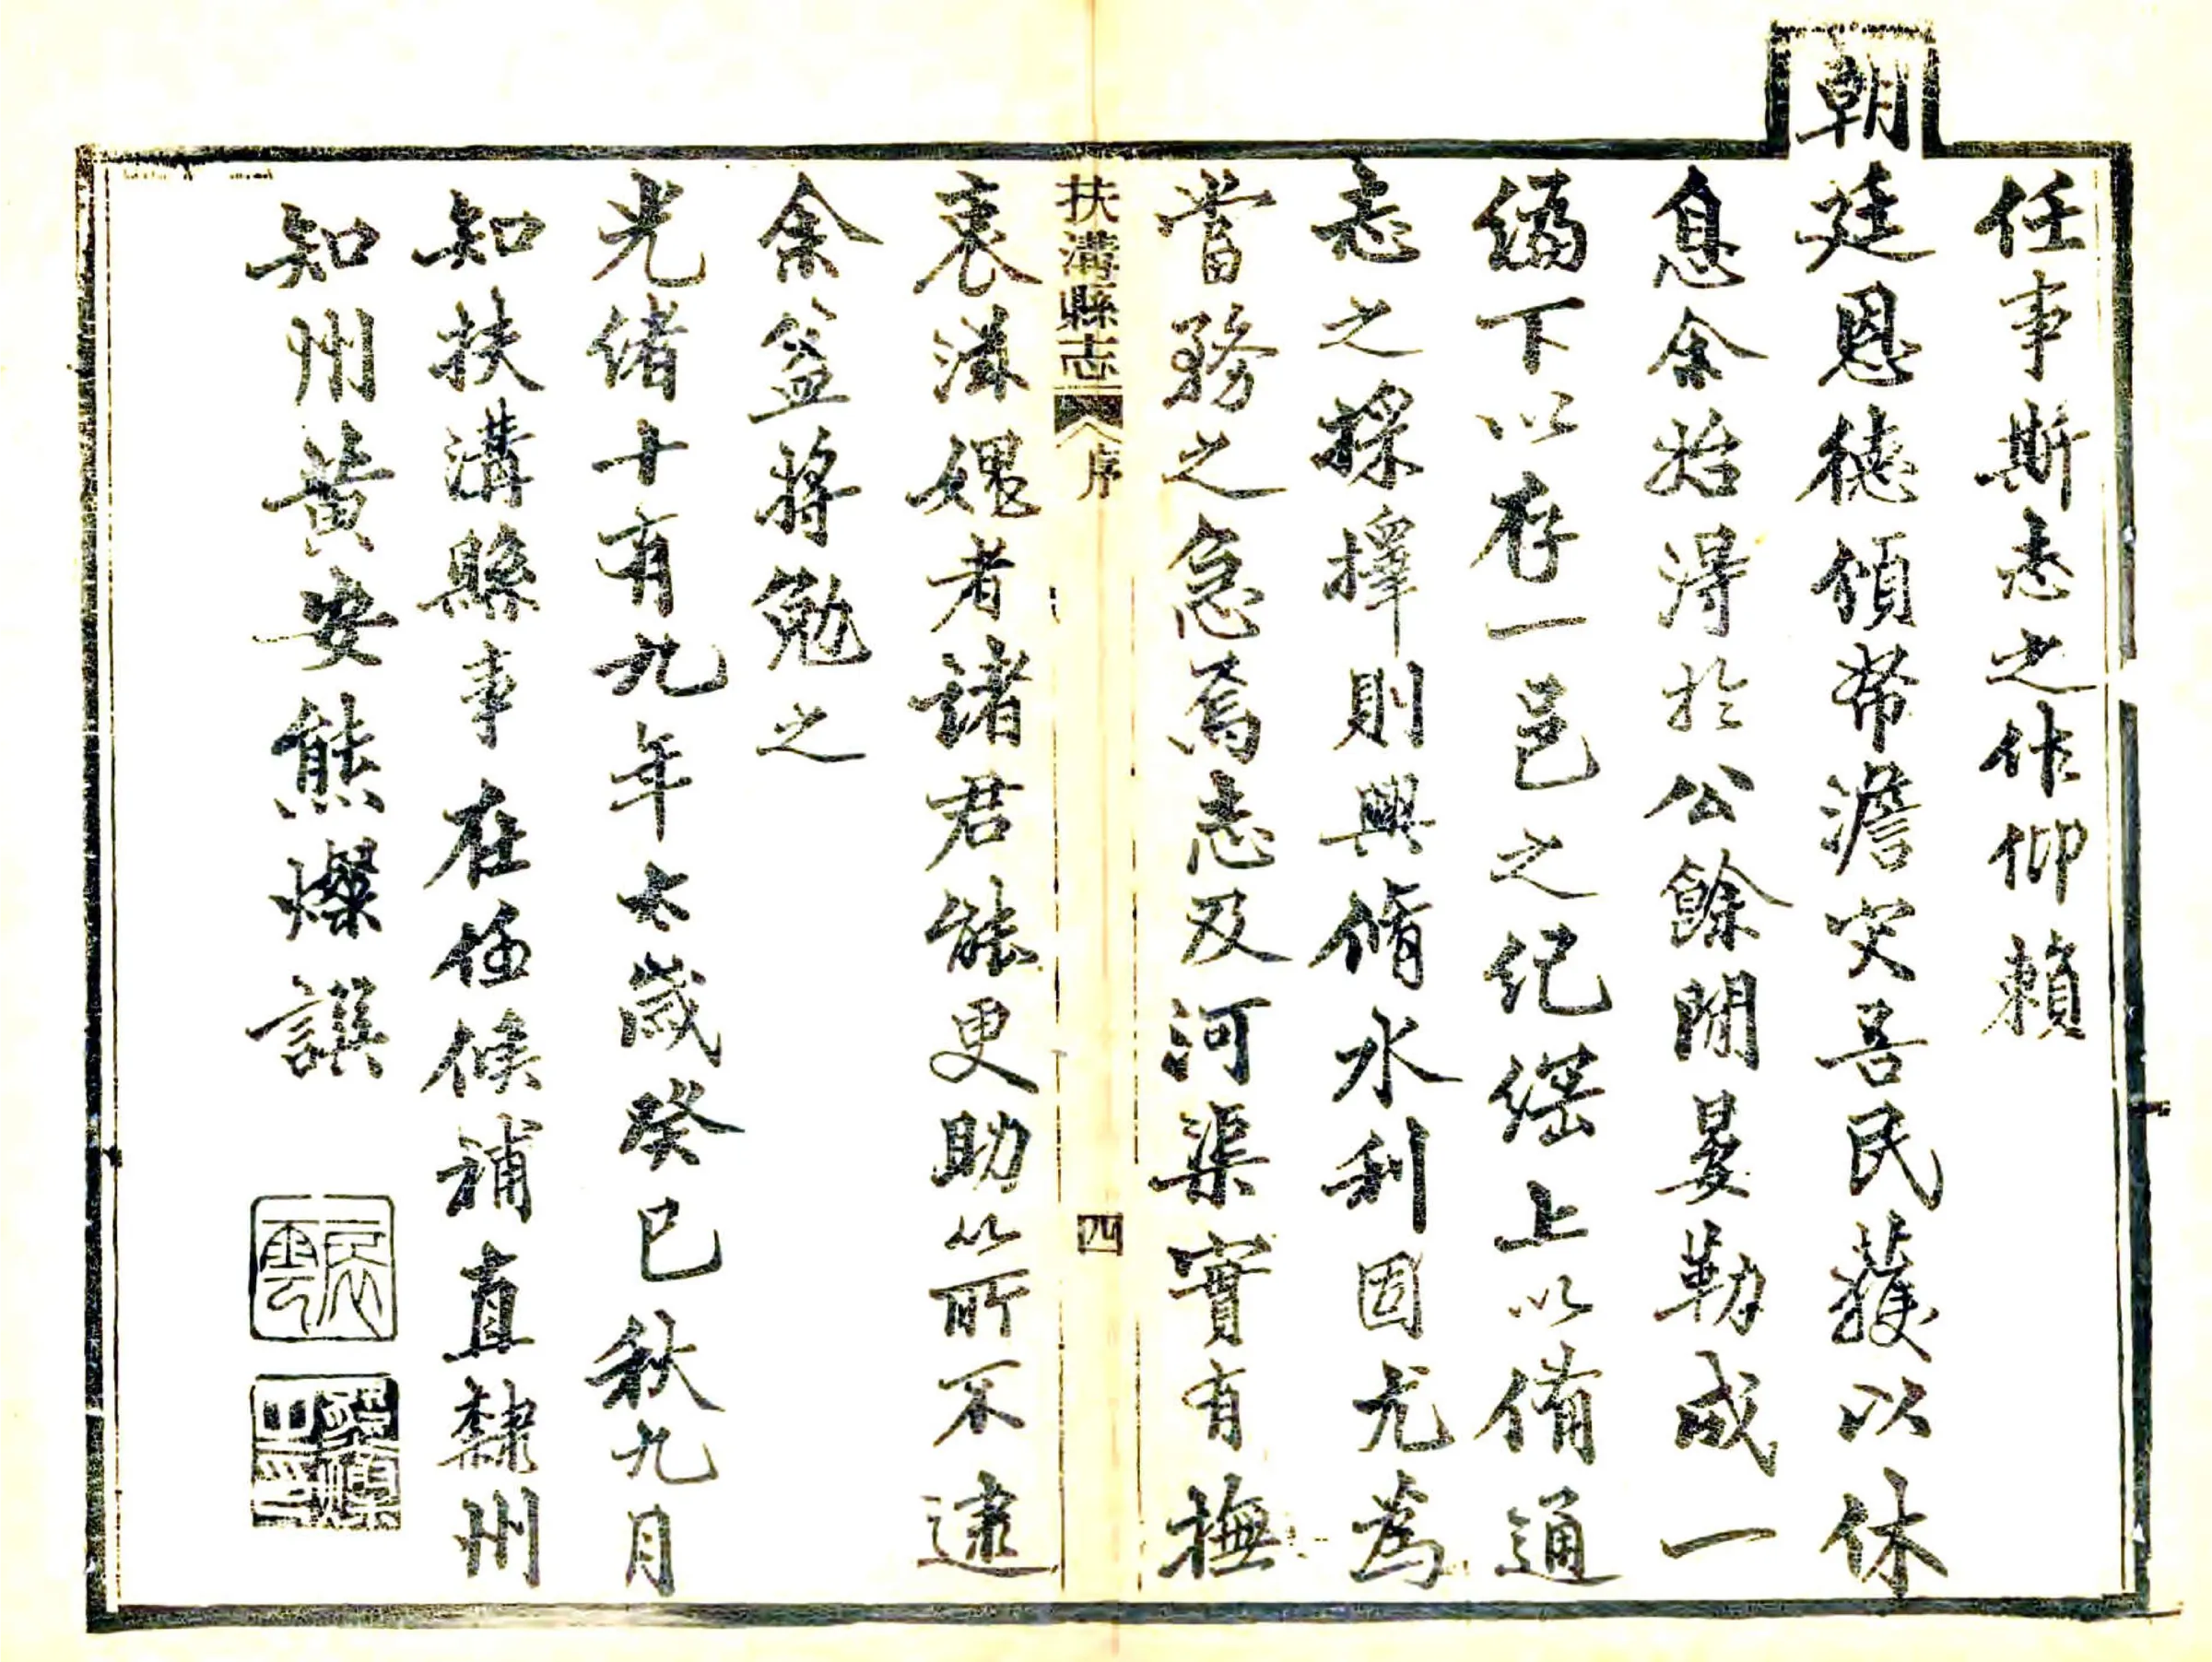 任事斯志之作仰賴
朝廷恩德傾帑澹灾吾民獲以休
息余始得於公餘閒晷勒成一
編下以存一邑之紀綱上以備通
志之採擇則興脩水利固尤爲
當務之急焉志及河渠實有撫
衷滋媿者諸君能更助以所不逮
余益將勉之
光緒十有九年太歲癸巳秋九月
知扶溝縣事在任候補直隸州
知州黄安熊燦譔
扶溝縣志
序
四
熊燦之印